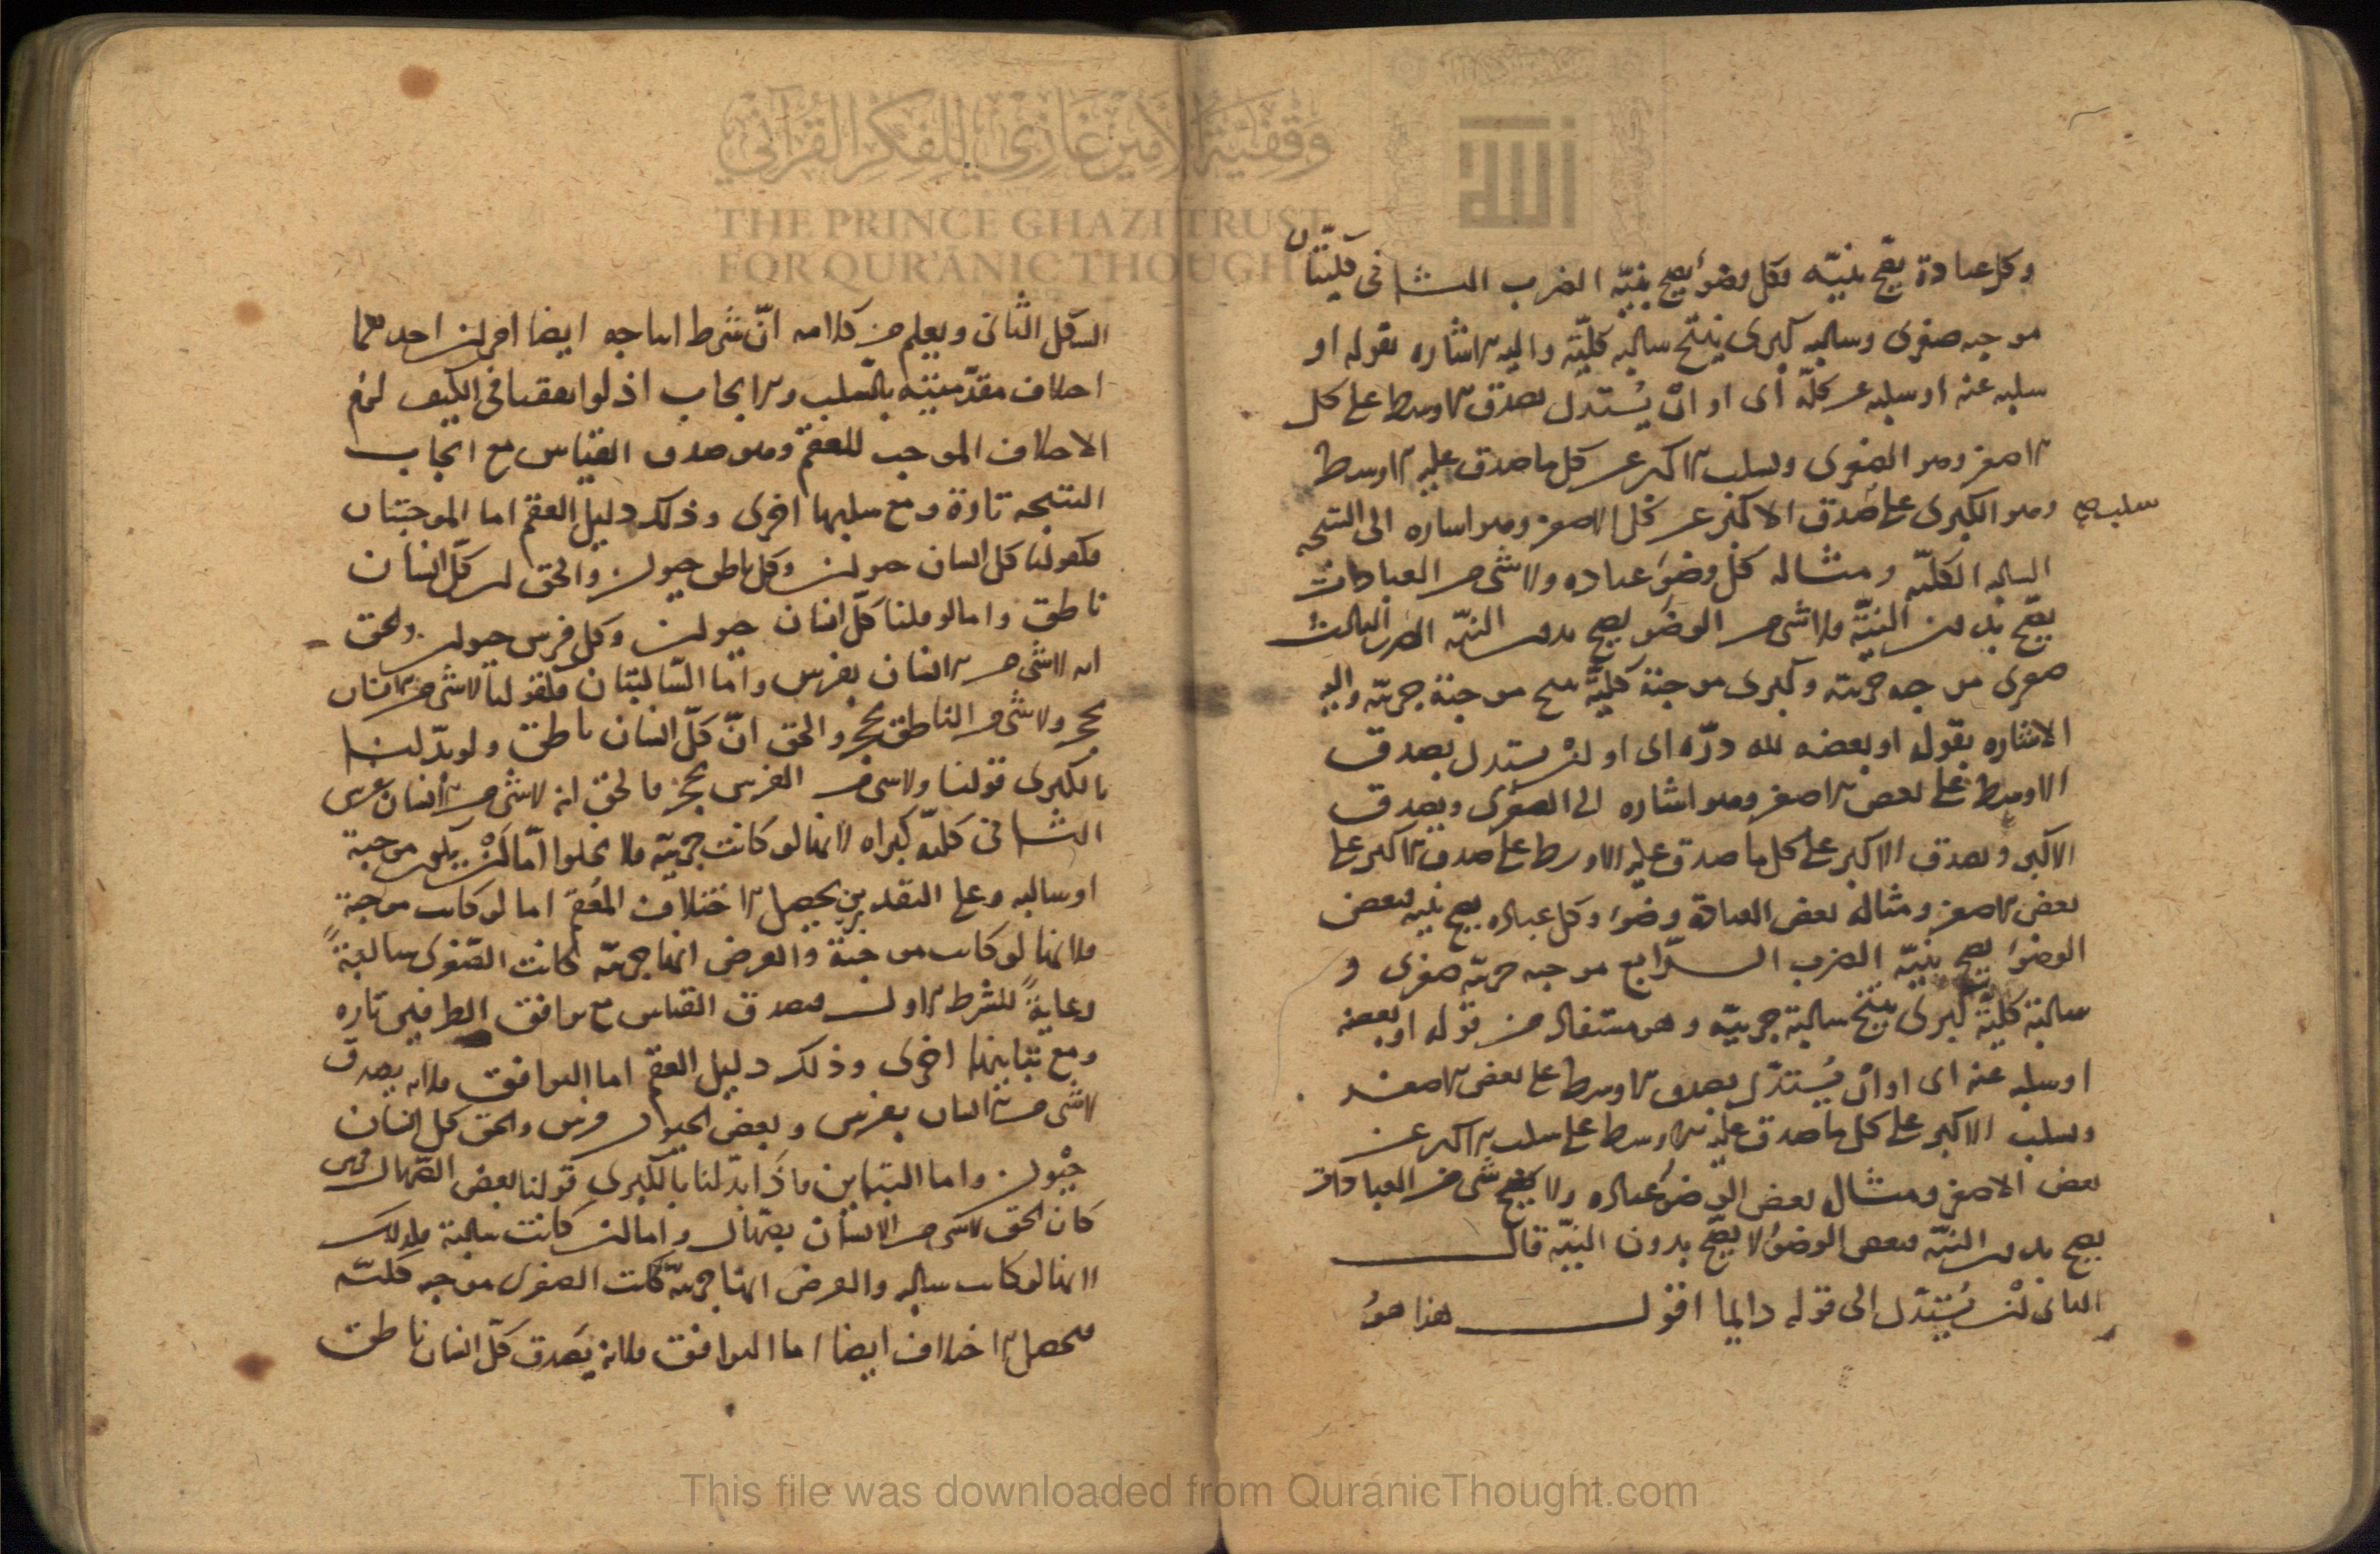 وكل عبادة يصح بنية فكل وضوء يصح بنية الضرب الثاني كليتان
موجبه صغرى وسالبه كبرى ينتج سالبه كليّة واليه الاشاره بقوله او
سلبه عنه او سلبه عن كلّه أى او ان يُستدل بصدق الاوسط على كل
الاصغر وهو الصغرى وبسلب الاكبر عن كل ما صدق عليه الاوسط
وهو الكبرى على صدق الاكبر عن كل الاصغر وهو اشاره الى النتيجه
سلب صح
السالبه الكليّه ومثاله كل وضوء عباده ولا شى من العبادات
يصّح بدون النيّة فلا شى من الوضوء يصح بدون النيّه الضرب الثالث
صغرى موجبه جزيه وكبرى موجبة كليّة ينتج موجبة جزيّه واليه
الاشاره بقوله او بعضه لله درّه اى او ان يستدل بصدق
الاوسط على بعض الاصغر وهو اشاره الى الصغرى وبصدق
الاكبر وبصدق الاكبر على كل ما صدق عليه الاوسط على صدق الاكبر على
بعض الاصغر ومثاله بعض العبادة وضوء وكل عباده يصح بنيه فبعض
الوضوء يصح بنيّه الضرب الرّابع موجبه جزيّه صغرى و
سالبة كليّة كبرى ينتج سالبة جزييّه وهو مستفاد من قوله او بعضه
او سلبه عنه اى او ان يُستدّل بصدق الاوسط على بعض الاصغر
وبسلب الاكبر على كل ما صدق عليه الاوسط على سلب الاكبر عن
بعض الاصغر ومثاله بعض الوضوء عباده ولا شى من العبادات
يصح بدون النيّه فبعض الوضوء لا يصّح بدون النيّه قال
الثانى ان يُستدّل الى قوله دايما اقول هذا هو
الشكل الثّانى ويعلم من كلامه انّ شرط انتاجه ايضا امران احدهما
اختلاف مقدّمتيه بالسّلب والايجاب اذ لو اتفقتا فى الكيف لزم
الاختلاف الموجب للعقم وهو صدق القياس مع ايجاب
النتيجه تارة ومع سلبها اخرى وذلك دليل العقم اما الموجبتان
فكقولنا كل انسان حيوان وكل ناطق حيوان والحق ان كلّ انسان
ناطق واما لو قلنا كلّ انسان حيوان وكل فرس حيوان والحق
انه لا شى من الانسان بفرس وامّا السّالبتان فكقولنا لا شى من الانسان
بحجر ولا شى من الناطق بحجر والحق انّ كلّ انسان ناطق ولو بدّلنا
بالكبرى قولنا ولا شى من الفرس بحجر فالحق انه لا شى من الانسان بفرس
الثانى كليّه كبراه لانها لو كانت جزيّه فلا يخلوا امّا ان يكون موجبة
او سالبه وعلى التقديرين يحصل الاختلاف المُعقم اما لو كانت موجبة
فلانها لو كانت موجبة والفرض انها جزيّه لكانت الصّغرى سالبةً
رعايةً للشرط الاول فيصدق القياس مع توافق الطرفين تاره
ومع تباينهما اخرى وذلك دليل العقم اما التوافق فلانه يصدق
لا شى من الانسان بفرس وبعض الحيوان فرس والحق كل انسان
حيوان واما التباين فاذا بدّلنا بالكبرى قولنا بعض الصّهال فرس
كان الحق لا شى من الانسان بصّهال واما ان كانت سالبة فلذلك
لانها لو كانت سالبه والفرض انها جزيّه كانت الصغرى موجبه كليّه
فيحصل الاختلاف ايضا اما التوافق فلانه يَصدق كلّ انسان ناطق
وقفية الأمير غازي للفكر القرآني
THE PRINCE GHAZI TRUST
FOR QUR'ĀNIC THOUGHT
الله
This file was downloaded from QuranicThought.com